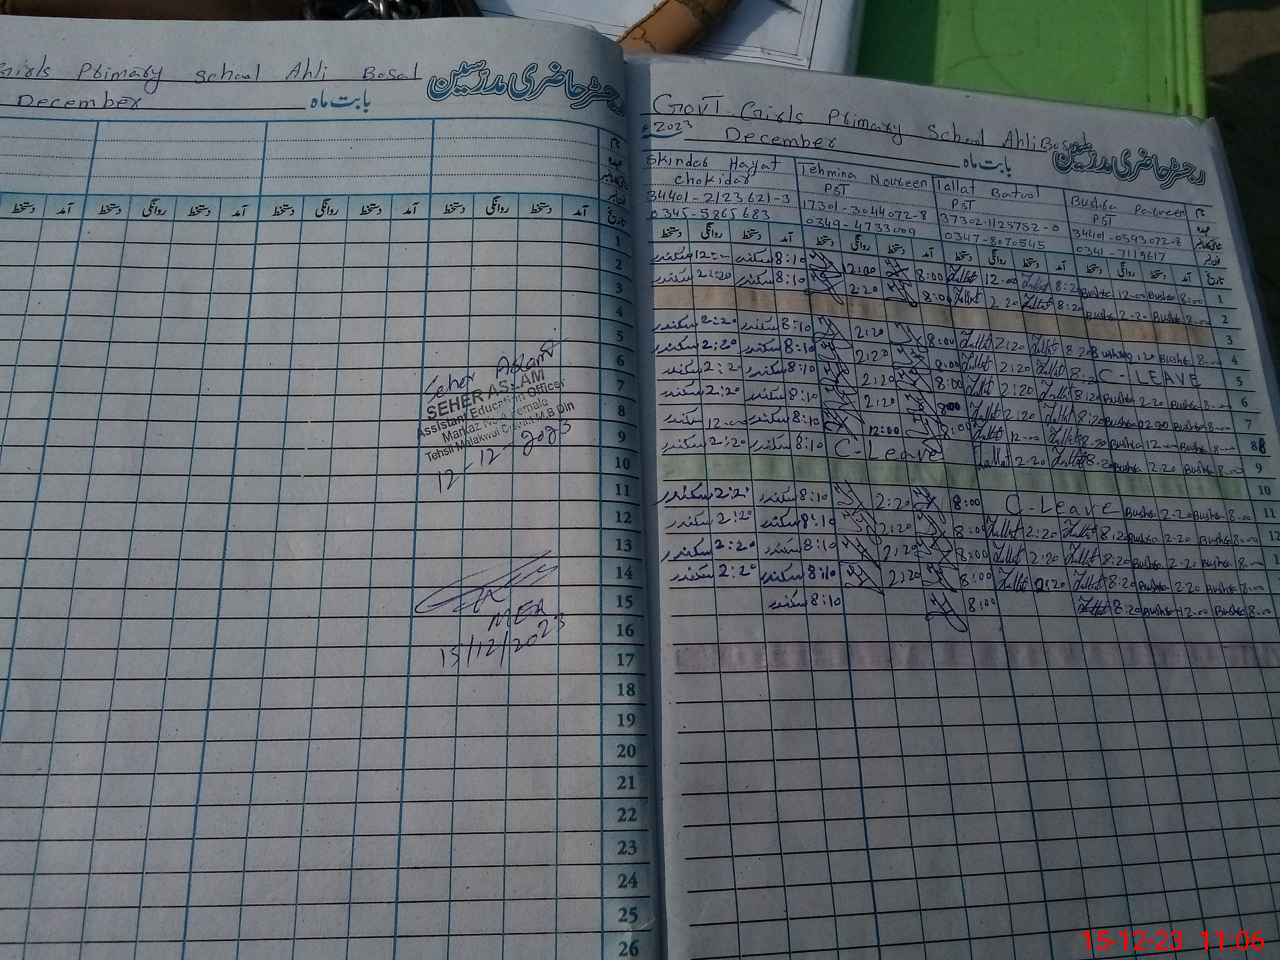 Girls Primary school Ahli Bosal
رجسٹر حاضری مدرسین
December
بابت ماہ
دستخط روانگی دستخط آمد دستخط روانگی دستخط آمد دستخط روانگی دستخط آمد
تاریخ
1
2
3
4
5
6
7
8
9
10
11
12
13
14
15
16
17
18
19
20
21
22
23
24
25
26
Seher Aslam
SEHER ASLAM
Assistant Education Officer
Markaz Female
Tehsil Malakwal M.B.Din
12-12-2023
MEA
15/12/2023
GOVT Girls Primary School Ahli Bosal
رجسٹر حاضری مدرسین
2023
December
بابت ماہ
Skinder Hayat
Chokidar
34401-2123621-3
0345-5865683
Tehmina Noureen
PST
17301-3044072-8
0349-4733009
Tallat Batool
PST
37302-1125752-0
0347-8070545
Bushba Parveen
PST
34401-0593072-8
0341-7119617
دستخط روانگی دستخط آمد دستخط روانگی دستخط آمد دستخط روانگی دستخط آمد دستخط روانگی دستخط آمد تاریخ
سکندر 12:00 سکندر 8:10 2:00 8:00 Tallat 12:00 Tallat 8:20 Bushba 12:00 Bushba 8:00 1
سکندر 2:20 سکندر 8:10 2:20 8:00 Tallat 2:20 Tallat 8:20 Bushba 2:20 Bushba 8:00 2
3
سکندر 2:20 سکندر 8:10 2:20 8:00 Tallat 2:20 Tallat 8:20 Bushba 2:20 Bushba 8:00 4
سکندر 2:20 سکندر 8:10 2:20 8:00 Tallat 2:20 Tallat 8:20 C-LEAVE 5
سکندر 2:20 سکندر 8:10 2:20 8:00 Tallat 2:20 Tallat 8:20 Bushba 2:20 Bushba 8:00 6
سکندر 2:20 سکندر 8:10 2:20 8:00 Tallat 2:20 Tallat 8:20 Bushba 2:20 Bushba 8:00 7
سکندر 12:00 سکندر 8:10 12:00 8:00 Tallat 12:00 Tallat 8:20 Bushba 12:00 Bushba 8:00 8
سکندر 2:20 سکندر 8:10 C-Leave Tallat 2:20 Tallat 8:20 Bushba 2:20 Bushba 8:00 9
10
سکندر 2:20 سکندر 8:10 2:20 8:00 C-Leave Bushba 2:20 Bushba 8:00 11
سکندر 2:20 سکندر 8:10 2:20 8:00 Tallat 2:20 Tallat 8:20 Bushba 2:20 Bushba 8:00 12
سکندر 2:20 سکندر 8:10 2:20 8:00 Tallat 2:20 Tallat 8:20 Bushba 2:20 Bushba 8:00
سکندر 2:20 سکندر 8:10 2:20 8:00 Tallat 2:20 Tallat 8:20 Bushba 2:20 Bushba 8:00
سکندر 8:10 8:00 Tallat 8:20 Bushba 12:00 Bushba 8:00
15-12-23 11:06